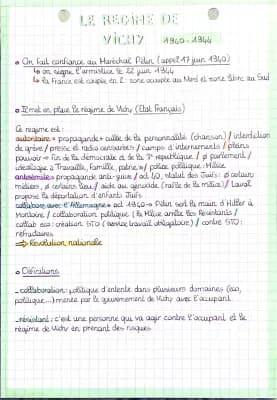 LE REGIME DE
VICHY 1940-1944
On fait confiance au Maréchal Pétin (appel 17 juin 1940)
↳ on signe l'armistice le 22 juin 1944
↳ la France est coupée en 2 : zone occupée au Nord et zone libre au Sud
Il met en place le régime de Vichy (Etat Français)
Ce régime est :
autoritaire = propagande + culte de la personnalité (chanson) / interdiction
de grève / presse et radio censurées / camps d'internements / pleins
pouvoir → fin de la démocratie et de la 3e république / ∅ parlement /
idéologie = Travaille, Famille, patrie / police politique : Milice
antisémite = propagande anti-juive / oct 40, statut des Juifs : ∅ certains
métiers, ∅ certains lieu / aide au génocide (rafle de la milice) / Laval
propose la déportation d'enfants Juifs
collabore avec l'Allemagne = oct 1940 → Pétin sert la main d'Hitler à
Montoire / collaboration politique (la Milice arrête les Résistants) /
collab eco : création STO (service travail obligatoire) / contre STO :
réfractaires
⇒ Révolution nationale
Définitions
_collaboration : politique d'entente dans plusieurs domaines (eco,
politique...) menée par le gouvernement de Vichy avec l'occupant.
_résistant : c'est une personne qui va agir contre l'occupant et le
régime de Vichy en prenant des risques